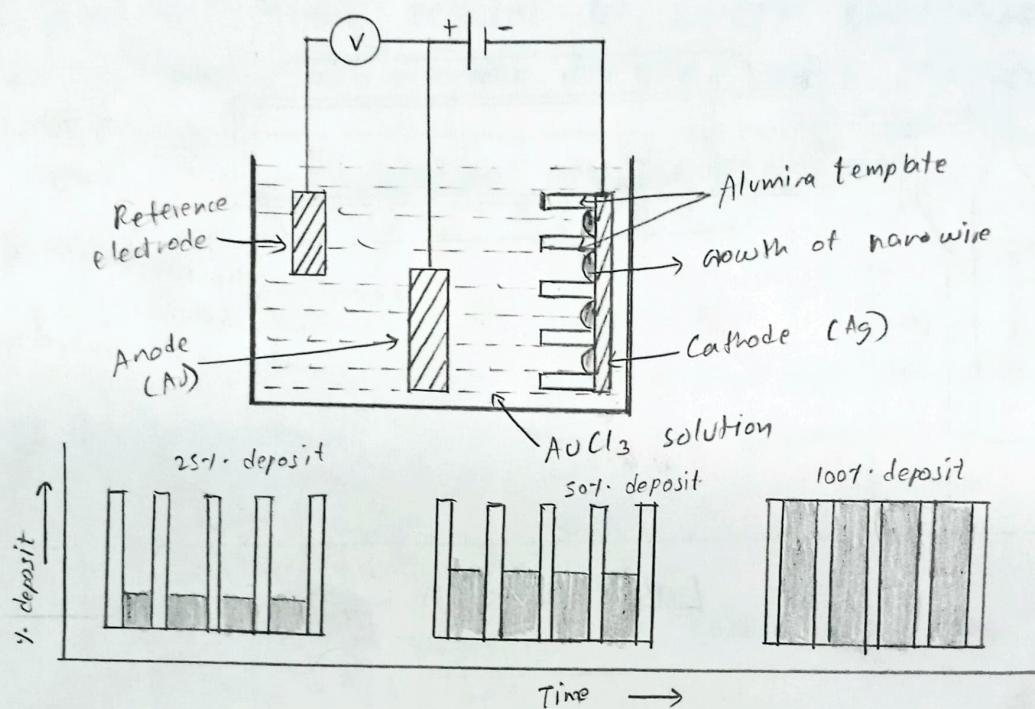 V
+ -
Reference
electrode
Alumina template
Growth of nanowire
Anode
(Au)
Cathode (Ag)
AuCl3 solution
25% deposit
50% deposit
100% deposit
% deposit
Time